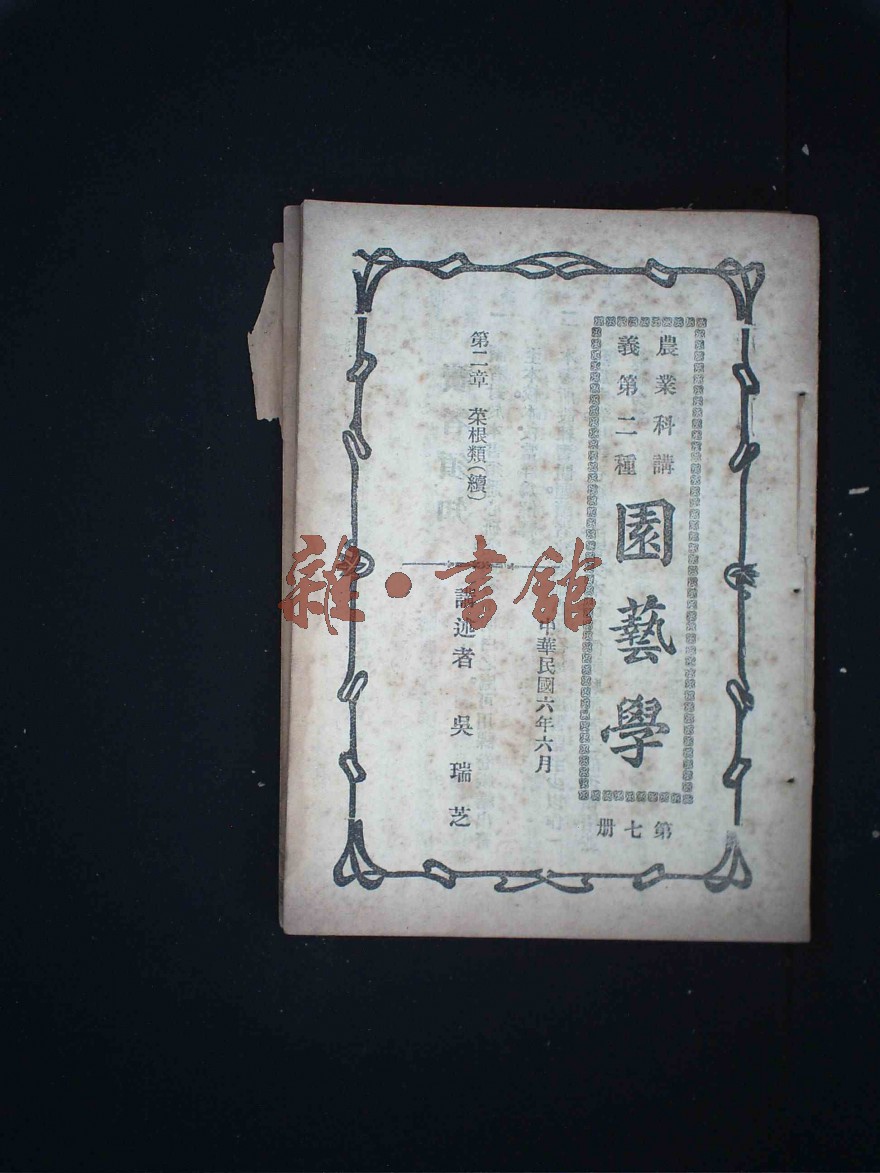 農業科講
義第二種
園藝學
第七册
中華民國六年六月
第二章　菜根類（續）
講述者　吳瑞芝
雜·書館